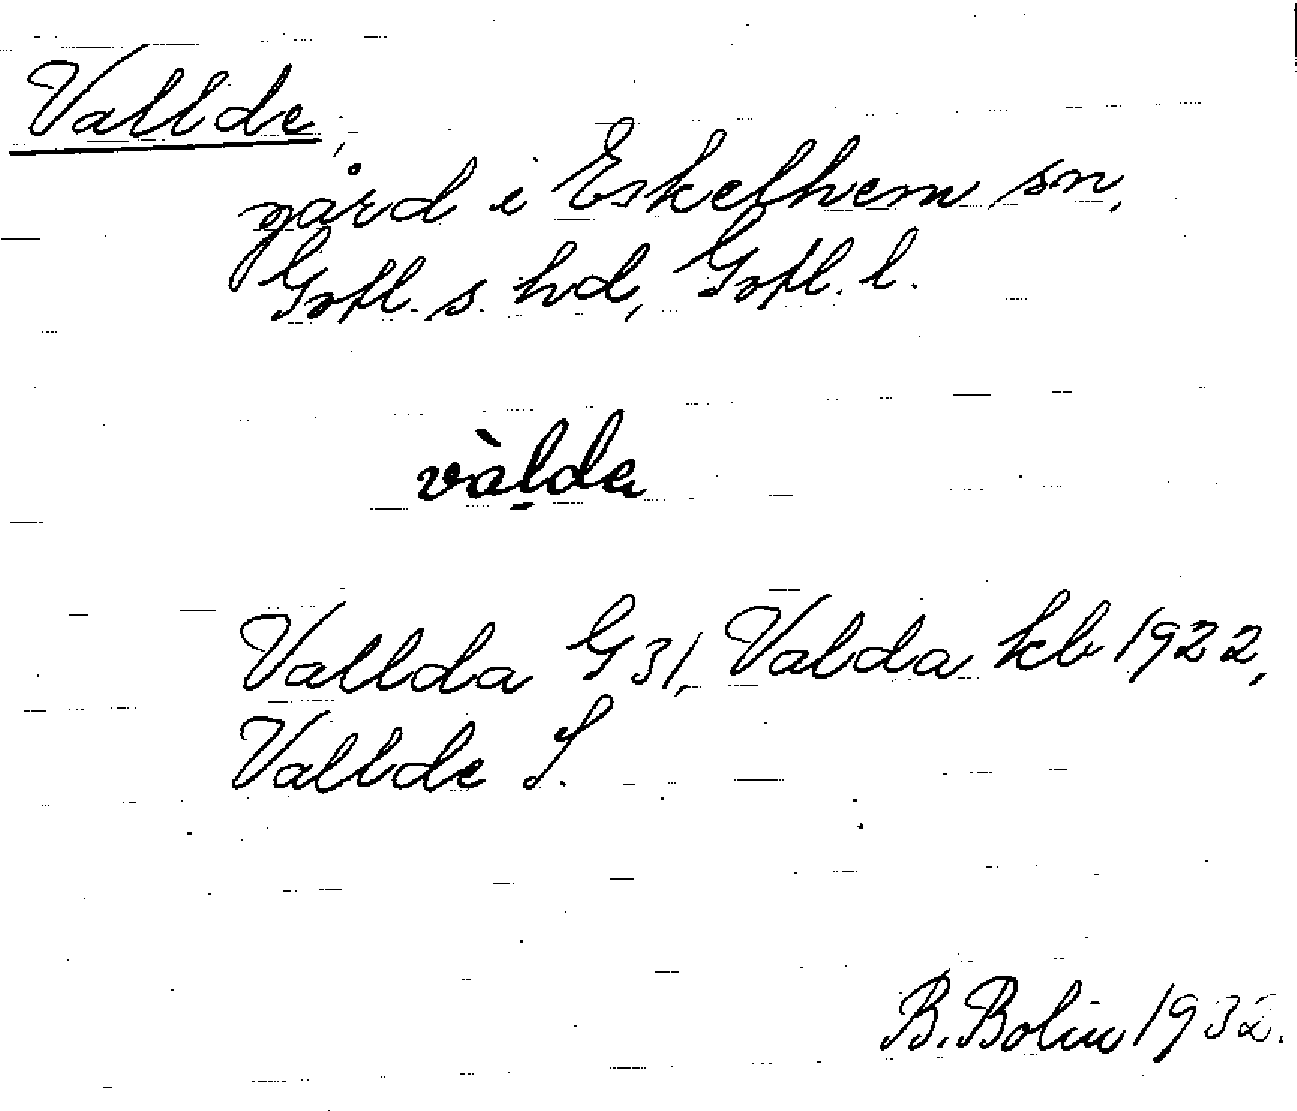 Vallde,
gård i Eskelhem sn,
Gotl. s. hd, Gotl. l.
vàl̠da
Vallda G 31, Valda kb 1922,
Vallde S.
B. Bolin 1932.